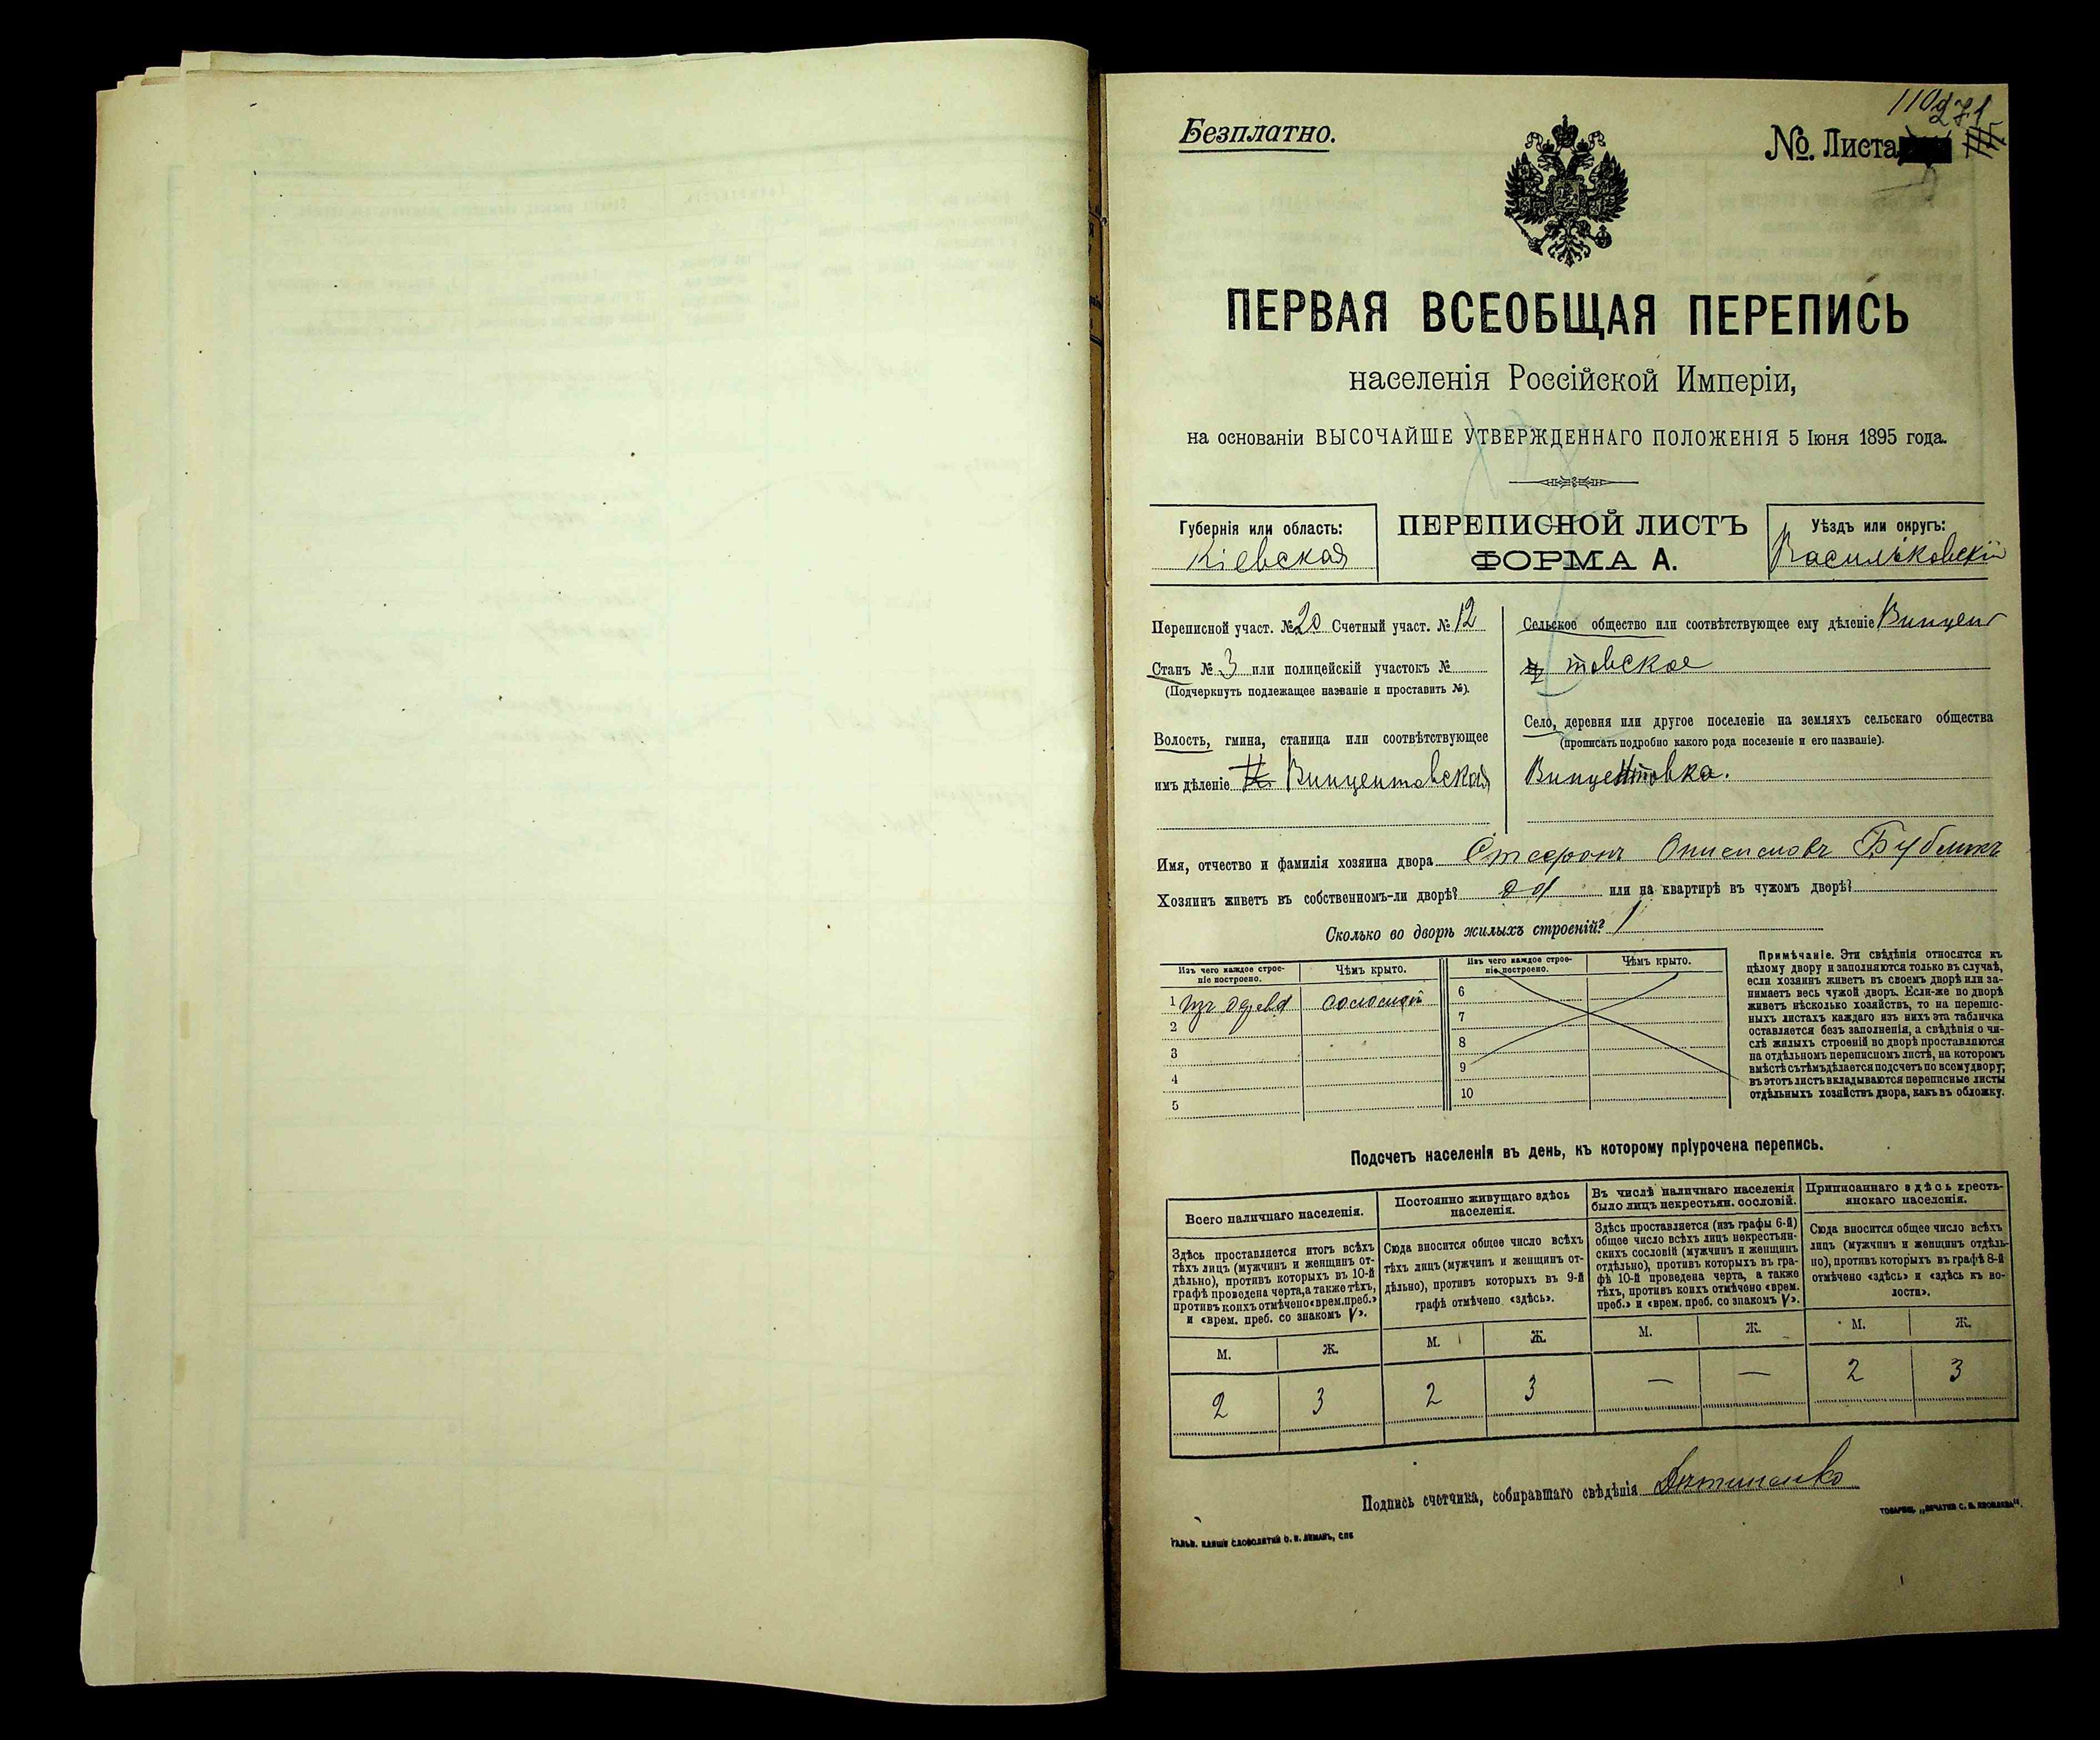 110 271
Безплатно.
№. Листа
ПЕРВАЯ ВСЕОБЩАЯ ПЕРЕПИСЬ
населенія Россійской Имперіи,
на основаніи ВЫСОЧАЙШЕ УТВЕРЖДЕННАГО ПОЛОЖЕНІЯ 5 Іюня 1895 года.
Губернія или область:
Кіевская
ПЕРЕПИСНОЙ ЛИСТЪ
ФОРМА А.
Уѣздъ или округъ:
Васильковскій
Переписной участ. № 20 Счетный участ. № 12
Станъ № 3 или полицейскій участокъ №
(Подчеркнуть подлежащее названіе и проставить №).
Волость, гмина, станица или соотвѣтствующее
имъ дѣленіе Винцентовская
Сельское общество или соотвѣтствующее ему дѣленіе Винцен
товское
Село, деревня или другое поселеніе на земляхъ сельскаго общества
(прописать подробно какого рода поселеніе и его названіе).
Винцентовка.
Имя, отчество и фамилія хозяина двора Бубликъ
Хозяинъ живетъ въ собственномъ-ли дворѣ? да или на квартирѣ въ чужомъ дворѣ?
Сколько во дворѣ жилыхъ строеній? 1
Изъ чего каждое строе-
ніе построено.
Чѣмъ крыто.
1 Изъ дерева соломой
2
3
4
5
Изъ чего каждое строе-
ніе построено.
Чѣмъ крыто.
6
7
8
9
10
Примѣчаніе. Эти свѣдѣнія относятся къ
цѣлому двору и заполняются только въ случаѣ,
если хозяинъ живетъ въ своемъ дворѣ или за-
нимаетъ весь чужой дворъ. Если-же во дворѣ
живетъ нѣсколько хозяйствъ, то на перепис-
ныхъ листахъ каждаго изъ нихъ эта табличка
оставляется безъ заполненія, а свѣдѣнія о чи-
слѣ жилыхъ строеній во дворѣ проставляются
на отдѣльномъ переписномъ листѣ, на которомъ
вмѣстѣ съ тѣмъ дѣлается подсчетъ по всему двору;
въ этотъ листъ вкладываются переписные листы
отдѣльныхъ хозяйствъ двора, какъ въ обложку.
Подсчетъ населенія въ день, къ которому пріурочена перепись.
Всего наличнаго населенія.
Здѣсь проставляется итогъ всѣхъ
тѣхъ лицъ (мужчинъ и женщинъ от-
дѣльно), противъ которыхъ въ 10-й
графѣ проведена черта, а также тѣхъ,
противъ коихъ отмѣчено «врем. преб.»
и «врем. преб. со знакомъ V».
М. Ж.
2 3
Постоянно живущаго здѣсь
населенія.
Сюда вносится общее число всѣхъ
тѣхъ лицъ (мужчинъ и женщинъ от-
дѣльно), противъ которыхъ въ 9-й
графѣ отмѣчено «здѣсь».
М. Ж.
2 3
Въ числѣ наличнаго населенія
было лицъ некрестьян. сословій.
Здѣсь проставляется (изъ графы 6-й)
общее число всѣхъ лицъ некрестьян-
скихъ сословій (мужчинъ и женщинъ
отдѣльно), противъ которыхъ въ гра-
фѣ 10-й проведена черта, а также
тѣхъ, противъ коихъ отмѣчено «врем.
преб.» и «врем. преб. со знакомъ V».
М. Ж.
— —
Приписаннаго здѣсь кресть-
янскаго населенія.
Сюда вносится общее число всѣхъ
лицъ (мужчинъ и женщинъ отдѣль-
но), противъ которыхъ въ графѣ 8-й
отмѣчено «здѣсь» и «здѣсь къ во-
лости».
М. Ж.
2 3
Подпись счетчика, собиравшаго свѣдѣнія
ГАЛЬВ. КЛИШЕ СЛОВОЛИТНИ О. И. ЛЕМАНЪ, СПБ
ТОВАРИЩ. „ПЕЧАТНЯ С. П. ЯКОВЛЕВА".